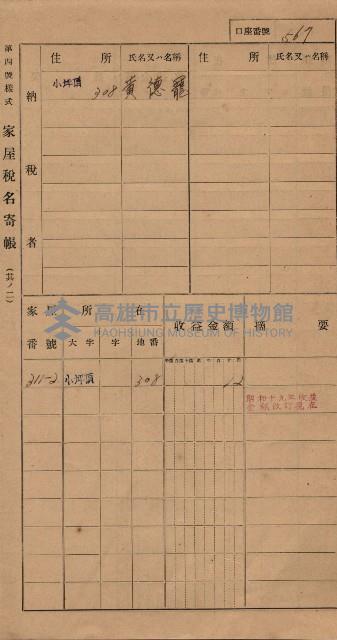 口座番號 567
第四號樣式 家屋稅名寄帳 (其ノ二)
納稅者
住所 氏名又ハ名稱 住所 氏名又ハ名稱
小坪頂 308 黄德
家屋所在 收益金額 摘要
番號 大字 字 地番
高雄市立歷史博物館
KAOHSIUNG MUSEUM OF HISTORY
211-2 小坪頂 308 12
昭和十九年收益
金額改訂現在